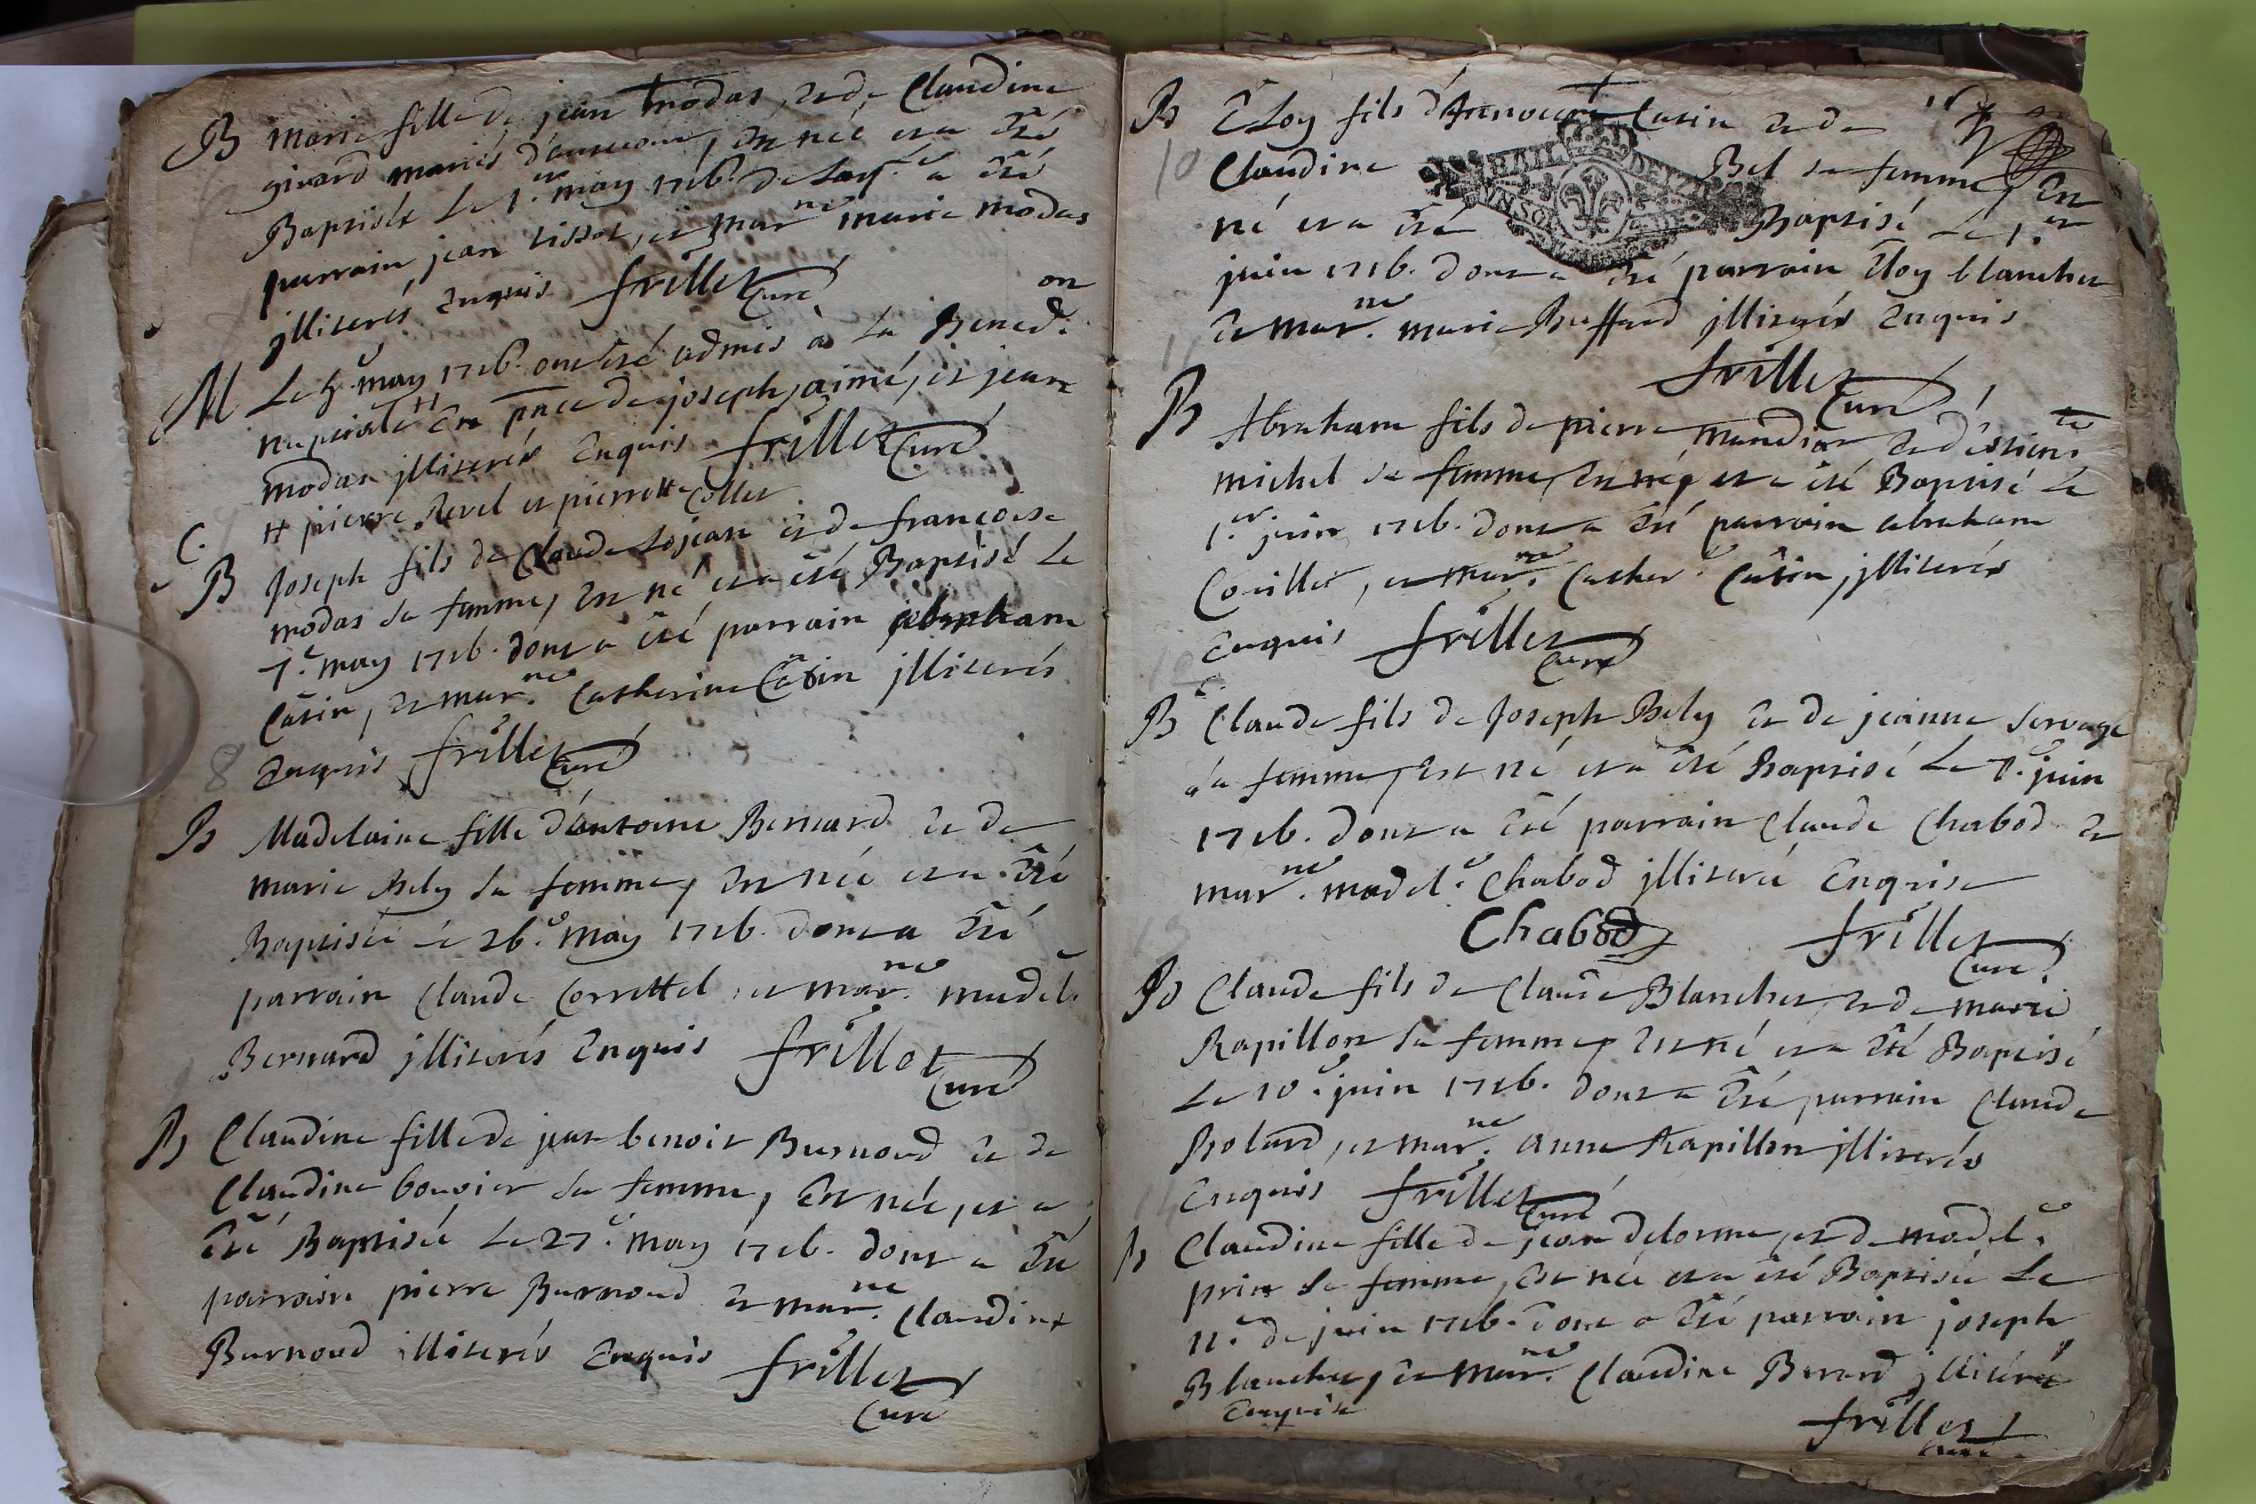 B Marie fille de jean modas, et de Claudine
girard mariés d'auxerein, est née et a été
Baptisée le 1.er may 1716. de laq.e a été
parrain jean tissot, et mar.ne marie modas
jlliterés enquis frillet Curé
M Le 5.e may 1716. ont été admis à la Bened.on
nuptiale # en pnce de joseph, aimé, et jean
modas jlliterés enquis frillet Curé
# pierre Revel et pierrette Collet
C.
B Joseph fils de Claude Lojean et de francoise
modas sa femme, est né et a été Baptisé le
7.e may 1716. dont a été parrain abraham
Catin, et mar.ne Catherine Catin jlliterés
enquis frillet Curé
8
B Madelaine fille d'antoine Bernard et de
marie Bely sa femme, est née et a été
Baptisée le 26.e may 1716. dont a été
parrain Claude Correttel, et mar.ne madel.e
Bernard jlliterés enquis frillet
Curé
B Claudine fille de jean benoit Burnoud et de
Claudine bouvier sa femme, est née, et a
été Baptisée le 27.e may 1716. dont a été
parrain pierre Burnoud et mar.ne Claudine
Burnoud illiterés enquis frillet
Curé
B Eloy fils d'Annocent Catin et de
10 Claudine Bel sa femme, est
né et a été Baptisé le 1.er
GN.RAIL DEVX SOLS
juin 1716. dont a été parrain Eloy blanchet
et mar.ne marie Buffard jlliterés enquis
11
frillet Curé
B Abraham fils de pierre mandier et d'estien.te
michel sa femme, est né, et a été Baptisé le
1.er juin 1716. dont a été parrain abraham
Couillet, et mar.ne Cather.e Catin, jlliterés
enquis frillet Curé
12
C.
B Claude fils de Joseph Bely et de jeanne servage
sa femme, est né et a été Baptisé le 7.e juin
1716. dont a été parrain Claude Chabod et
mar.ne madel.e Chabod jlliterée enquise
Chabod frillet Curé
13
B Claude fils de Claude Blanchet, et de marie
Rapillon sa femme, est né et a été Baptisé
Le 10.e juin 1716. dont a été parrain Claude
Bolard, et mar.ne anne Rapillon jlliterés
enquis frillet Curé
14
B Claudine fille de jean delorme, et de madel.e
prin sa femme, est née et a été Baptisée le
11.e de juin 1716. dont a été parrain joseph
Blanchet, et mar.ne Claudine Berard jlliterée
enquise
frillet
Curé